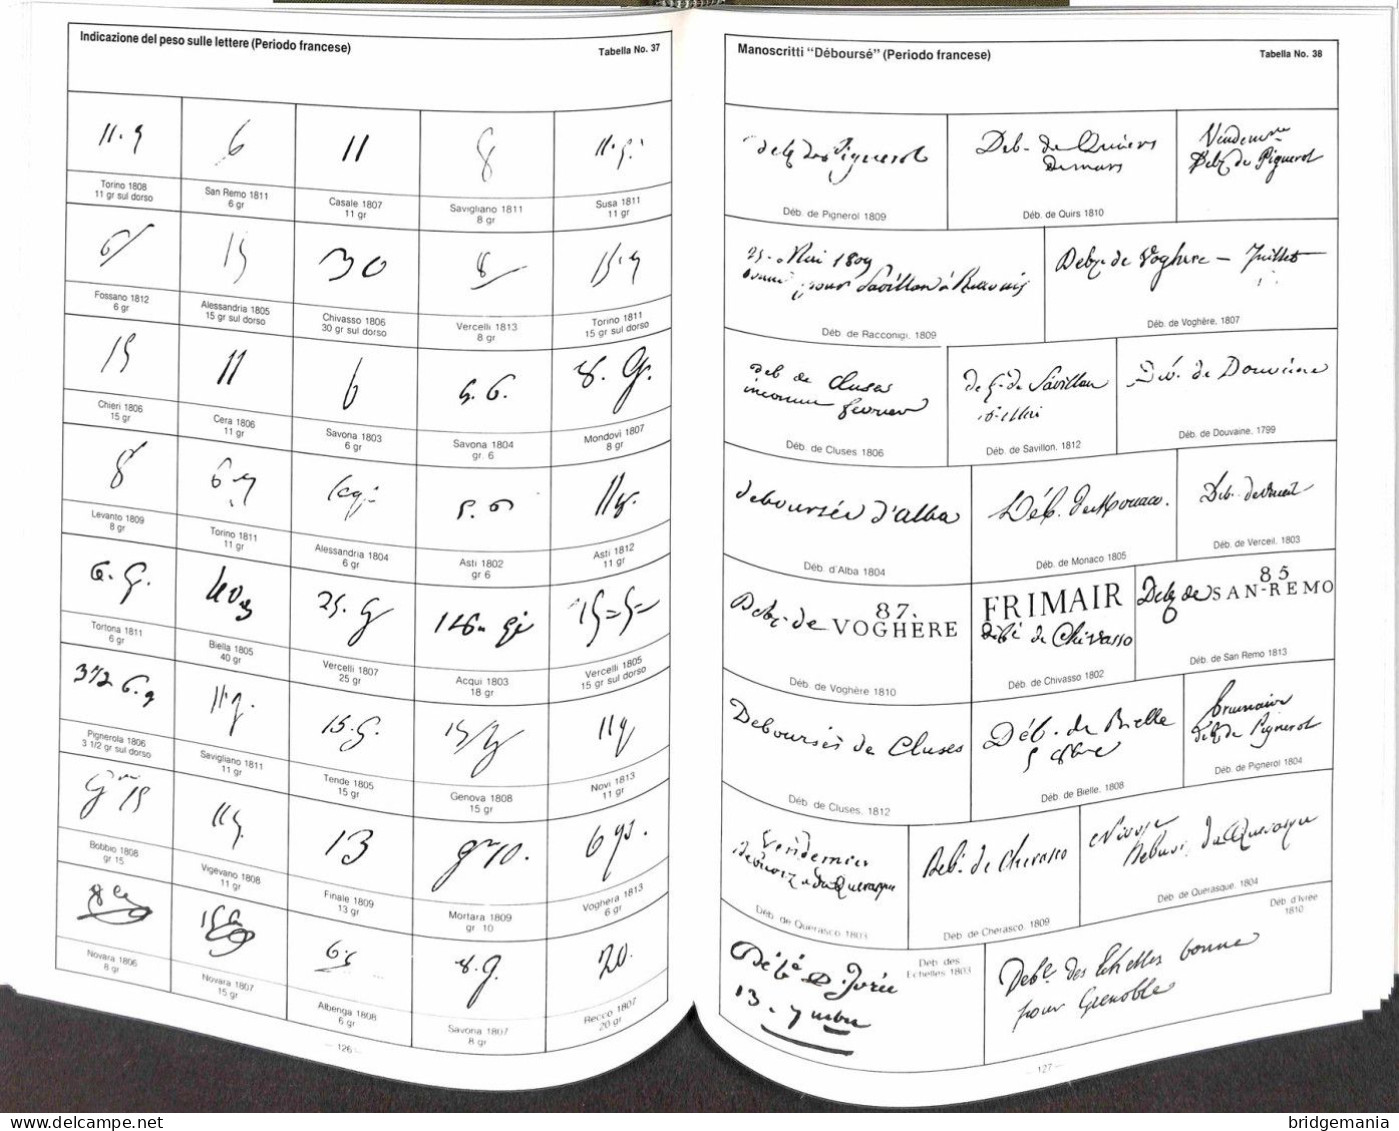 Indicazione del peso sulle lettere (Periodo francese)
Tabella No. 37
11. g
6
11
8
11. g.
Torino 1808
11 gr sul dorso
San Remo 1811
6 gr
Casale 1807
11 gr
Savigliano 1811
8 gr
Susa 1811
11 gr
6
15
30
8
15. g
Fossano 1812
6 gr
Alessandria 1805
15 gr sul dorso
Chivasso 1806
30 gr sul dorso
Vercelli 1813
8 gr
Torino 1811
15 gr sul dorso
15
11
6
g. 6.
8. G.
Chieri 1806
15 gr
Cera 1806
11 gr
Savona 1803
6 gr
Savona 1804
gr. 6
Mondovi 1807
8 gr
8
6
Levanto 1809
8 gr
Torino 1811
11 gr
Alessandria 1804
6 gr
Asti 1802
gr 6
Asti 1812
11 gr
6. G.
25. G
Tortona 1811
6 gr
Biella 1805
40 gr
Vercelli 1807
25 gr
Acqui 1803
18 gr
Vercelli 1805
15 gr sul dorso
3 1/2 G. g
11. g.
15. G.
11 g
Pignerola 1806
3 1/2 gr sul dorso
Savigliano 1811
11 gr
Tende 1805
15 gr
Genova 1808
15 gr
Novi 1813
11 gr
Grm 15
11 g.
13
grm 10.
6 gs.
Bobbio 1808
gr 15
Vigevano 1808
11 gr
Finale 1809
13 gr
Mortara 1809
gr 10
Voghera 1813
6 gr
8
15
6. g
8. g.
20.
Novara 1806
8 gr
Novara 1807
15 gr
Albenga 1808
6 gr
Savona 1807
8 gr
Recco 1807
20 gr
— 126 —
Manoscritti "Déboursé" (Periodo francese)
Tabella No. 38
Pignerol
Deb. de Quiers
de mars
Vendemre
Deb de Pignerol
Déb. de Pignerol 1809
Déb. de Quirs 1810
25. Mai 1809
pour Savillan à Beauvais
Deb de Voghere — Juillet
Déb. de Racconigi, 1809
Déb. de Voghère, 1807
deb de Cluses
inconnu fevrier
de Savillan
Déb. de Douvaine
Déb. de Cluses 1806
Déb. de Savillon, 1812
Déb. de Douvaine, 1799
deboursée d'alba
Déb. de Monaco.
Deb. de Verceil
Déb. d'Alba 1804
Déb. de Monaco 1805
Déb. de Verceil, 1803
Deb. de
87.
VOGHERE
FRIMAIR
débé de Chivasso
Deb de
85
SAN-REMO
Déb. de Voghère 1810
Déb. de Chivasso 1802
Déb. de San Remo 1813
Deboursés de Cluses
Déb. de Bielle
5
brumaire
deb de Pignerol
Déb. de Cluses, 1812
Déb. de Bielle, 1808
Déb. de Pignerol 1804
Vendemier
Deb. de Cherasco
Nivose
Debours. de Querasque
Déb. de Querasco 1803
Déb. de Cherasco, 1809
Déb. de Querasque, 1804
Débé D. Ivrée
13.
Déb. des
Echelles 1803
Deb. des Echelles bonne
pour Grenoble
Déb. d'Ivrée
1810
— 127 —
bridgemania